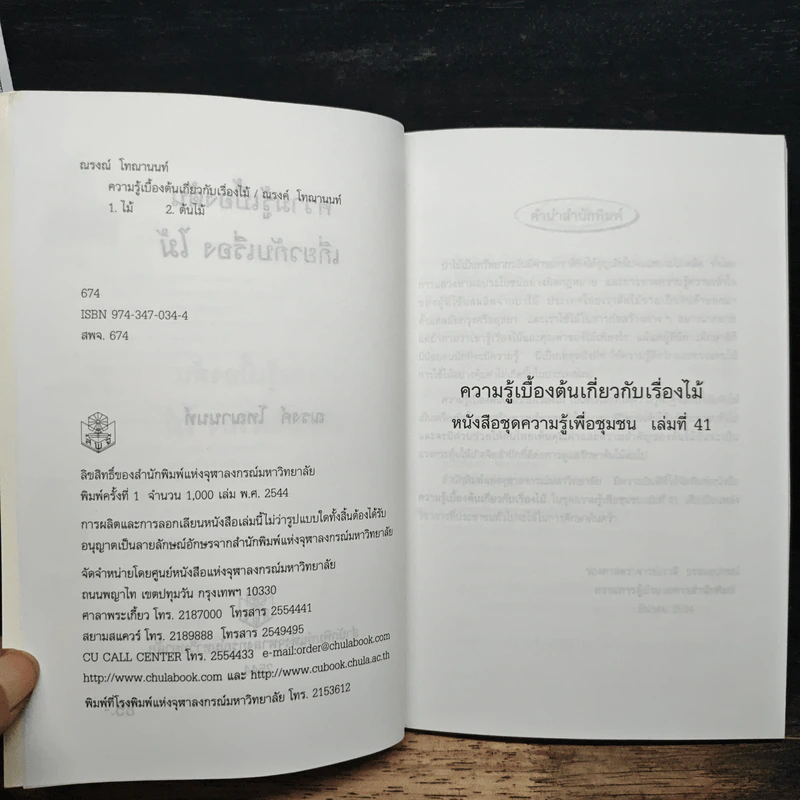 ณรงณ์ โทณานนท์
ความรู้เบื้องต้นเกี่ยวกับเรื่องไม้ / ณรงค์ โทณานนท์
1. ไม้ 2. ต้นไม้
674
ISBN 974-347-034-4
สพจ. 674
ลิขสิทธิ์ของสำนักพิมพ์แห่งจุฬาลงกรณ์มหาวิทยาลัย
พิมพ์ครั้งที่ 1 จำนวน 1,000 เล่ม พ.ศ. 2544
การผลิตและการลอกเลียนหนังสือเล่มนี้ไม่ว่ารูปแบบใดทั้งสิ้นต้องได้รับ
อนุญาตเป็นลายลักษณ์อักษรจากสำนักพิมพ์แห่งจุฬาลงกรณ์มหาวิทยาลัย
จัดจำหน่ายโดยศูนย์หนังสือแห่งจุฬาลงกรณ์มหาวิทยาลัย
ถนนพญาไท เขตปทุมวัน กรุงเทพฯ 10330
ศาลาพระเกี้ยว โทร. 2187000 โทรสาร 2554441
สยามสแควร์ โทร. 2189888 โทรสาร 2549495
CU CALL CENTER โทร. 2554433 e-mail:order@chulabook.com
http://www.chulabook.com และ http://www.cubook.chula.ac.th
พิมพ์ที่โรงพิมพ์แห่งจุฬาลงกรณ์มหาวิทยาลัย โทร. 2153612
ความรู้เบื้องต้นเกี่ยวกับเรื่องไม้
หนังสือชุดความรู้เพื่อชุมชน เล่มที่ 41